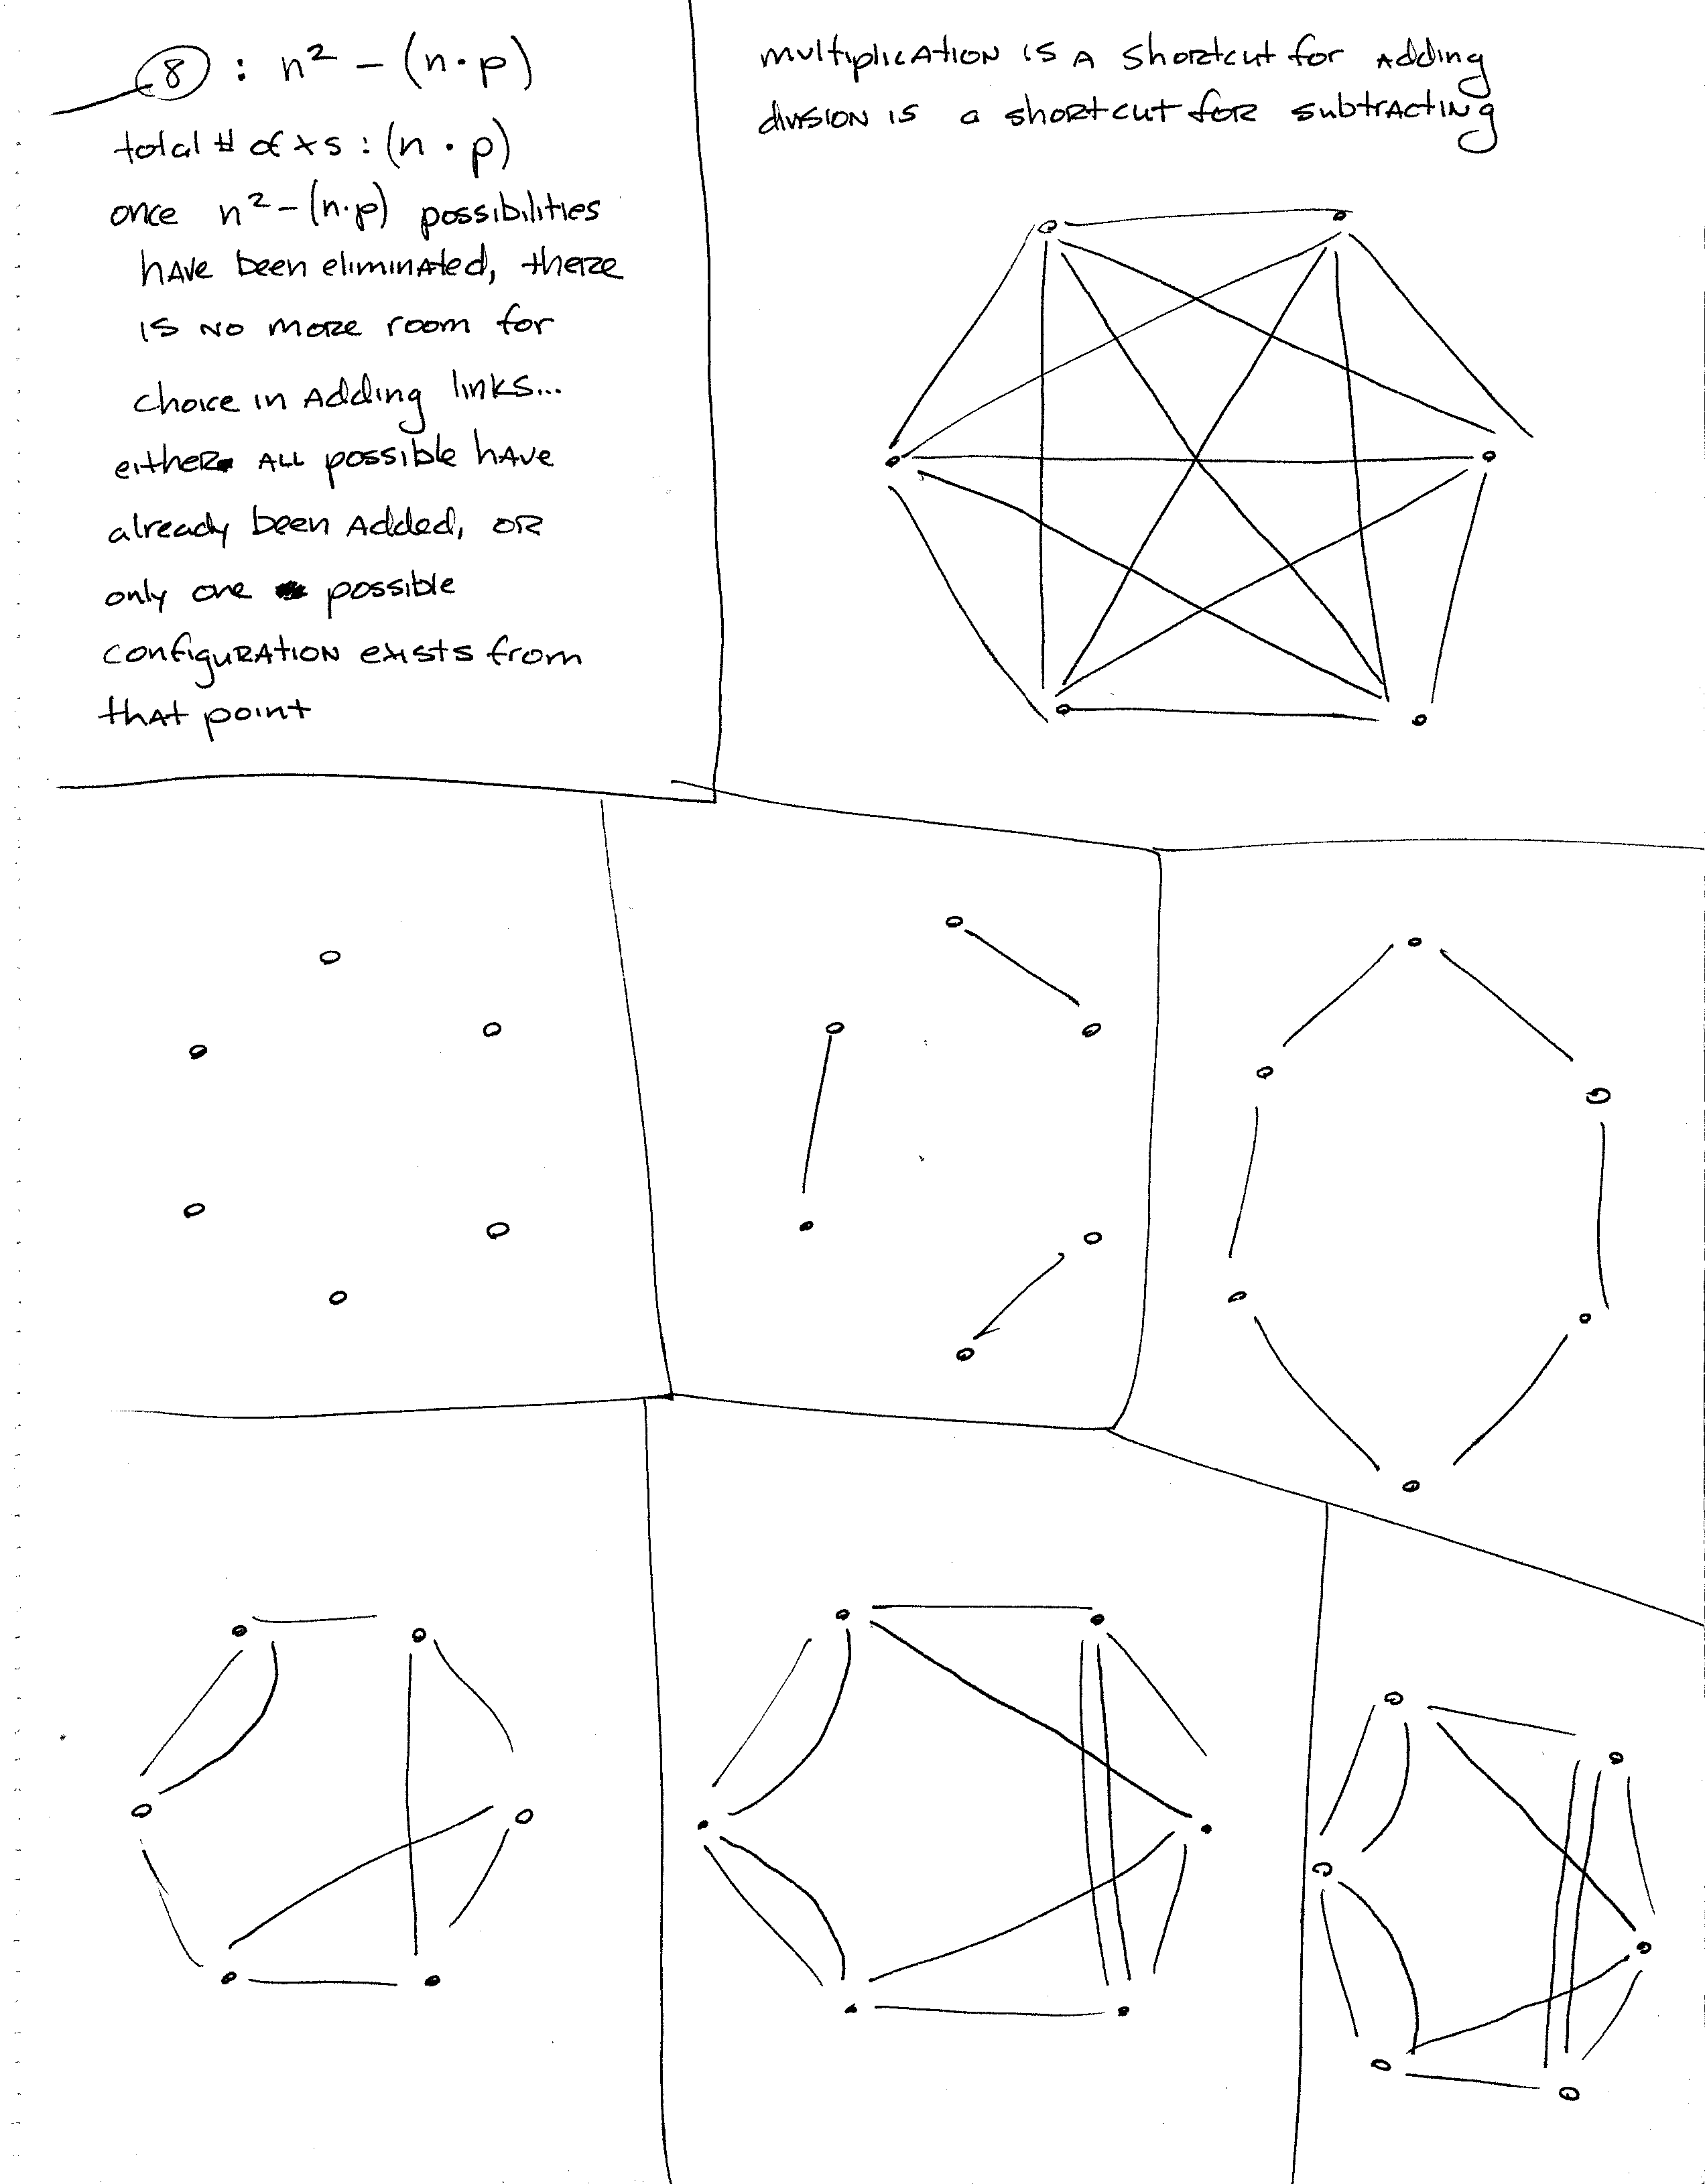 8 : n² - (n·p)
total # of xs : (n · p)
once n² - (n·p) possibilities
have been eliminated, there
is no more room for
choice in adding links...
either all possible have
already been added, or
only one possible
configuration exists from
that point
multiplication is a shortcut for adding
division is a shortcut for subtracting